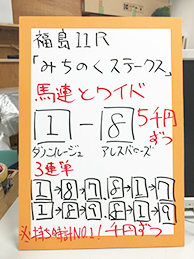 福島11R
「みちのくステークス」
馬連とワイド
1-8 5千円ずつ
ダノンルージュ アレスバローズ
3連単
1→8→7 8→1→7
1→8→9 8→1→9
※持ち時計NO.1!千円ずつ